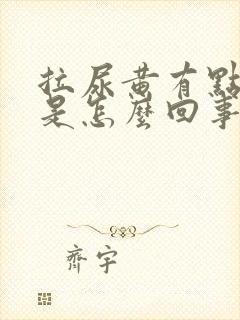 拉尿黄有點
是怎麼回事
齊宇